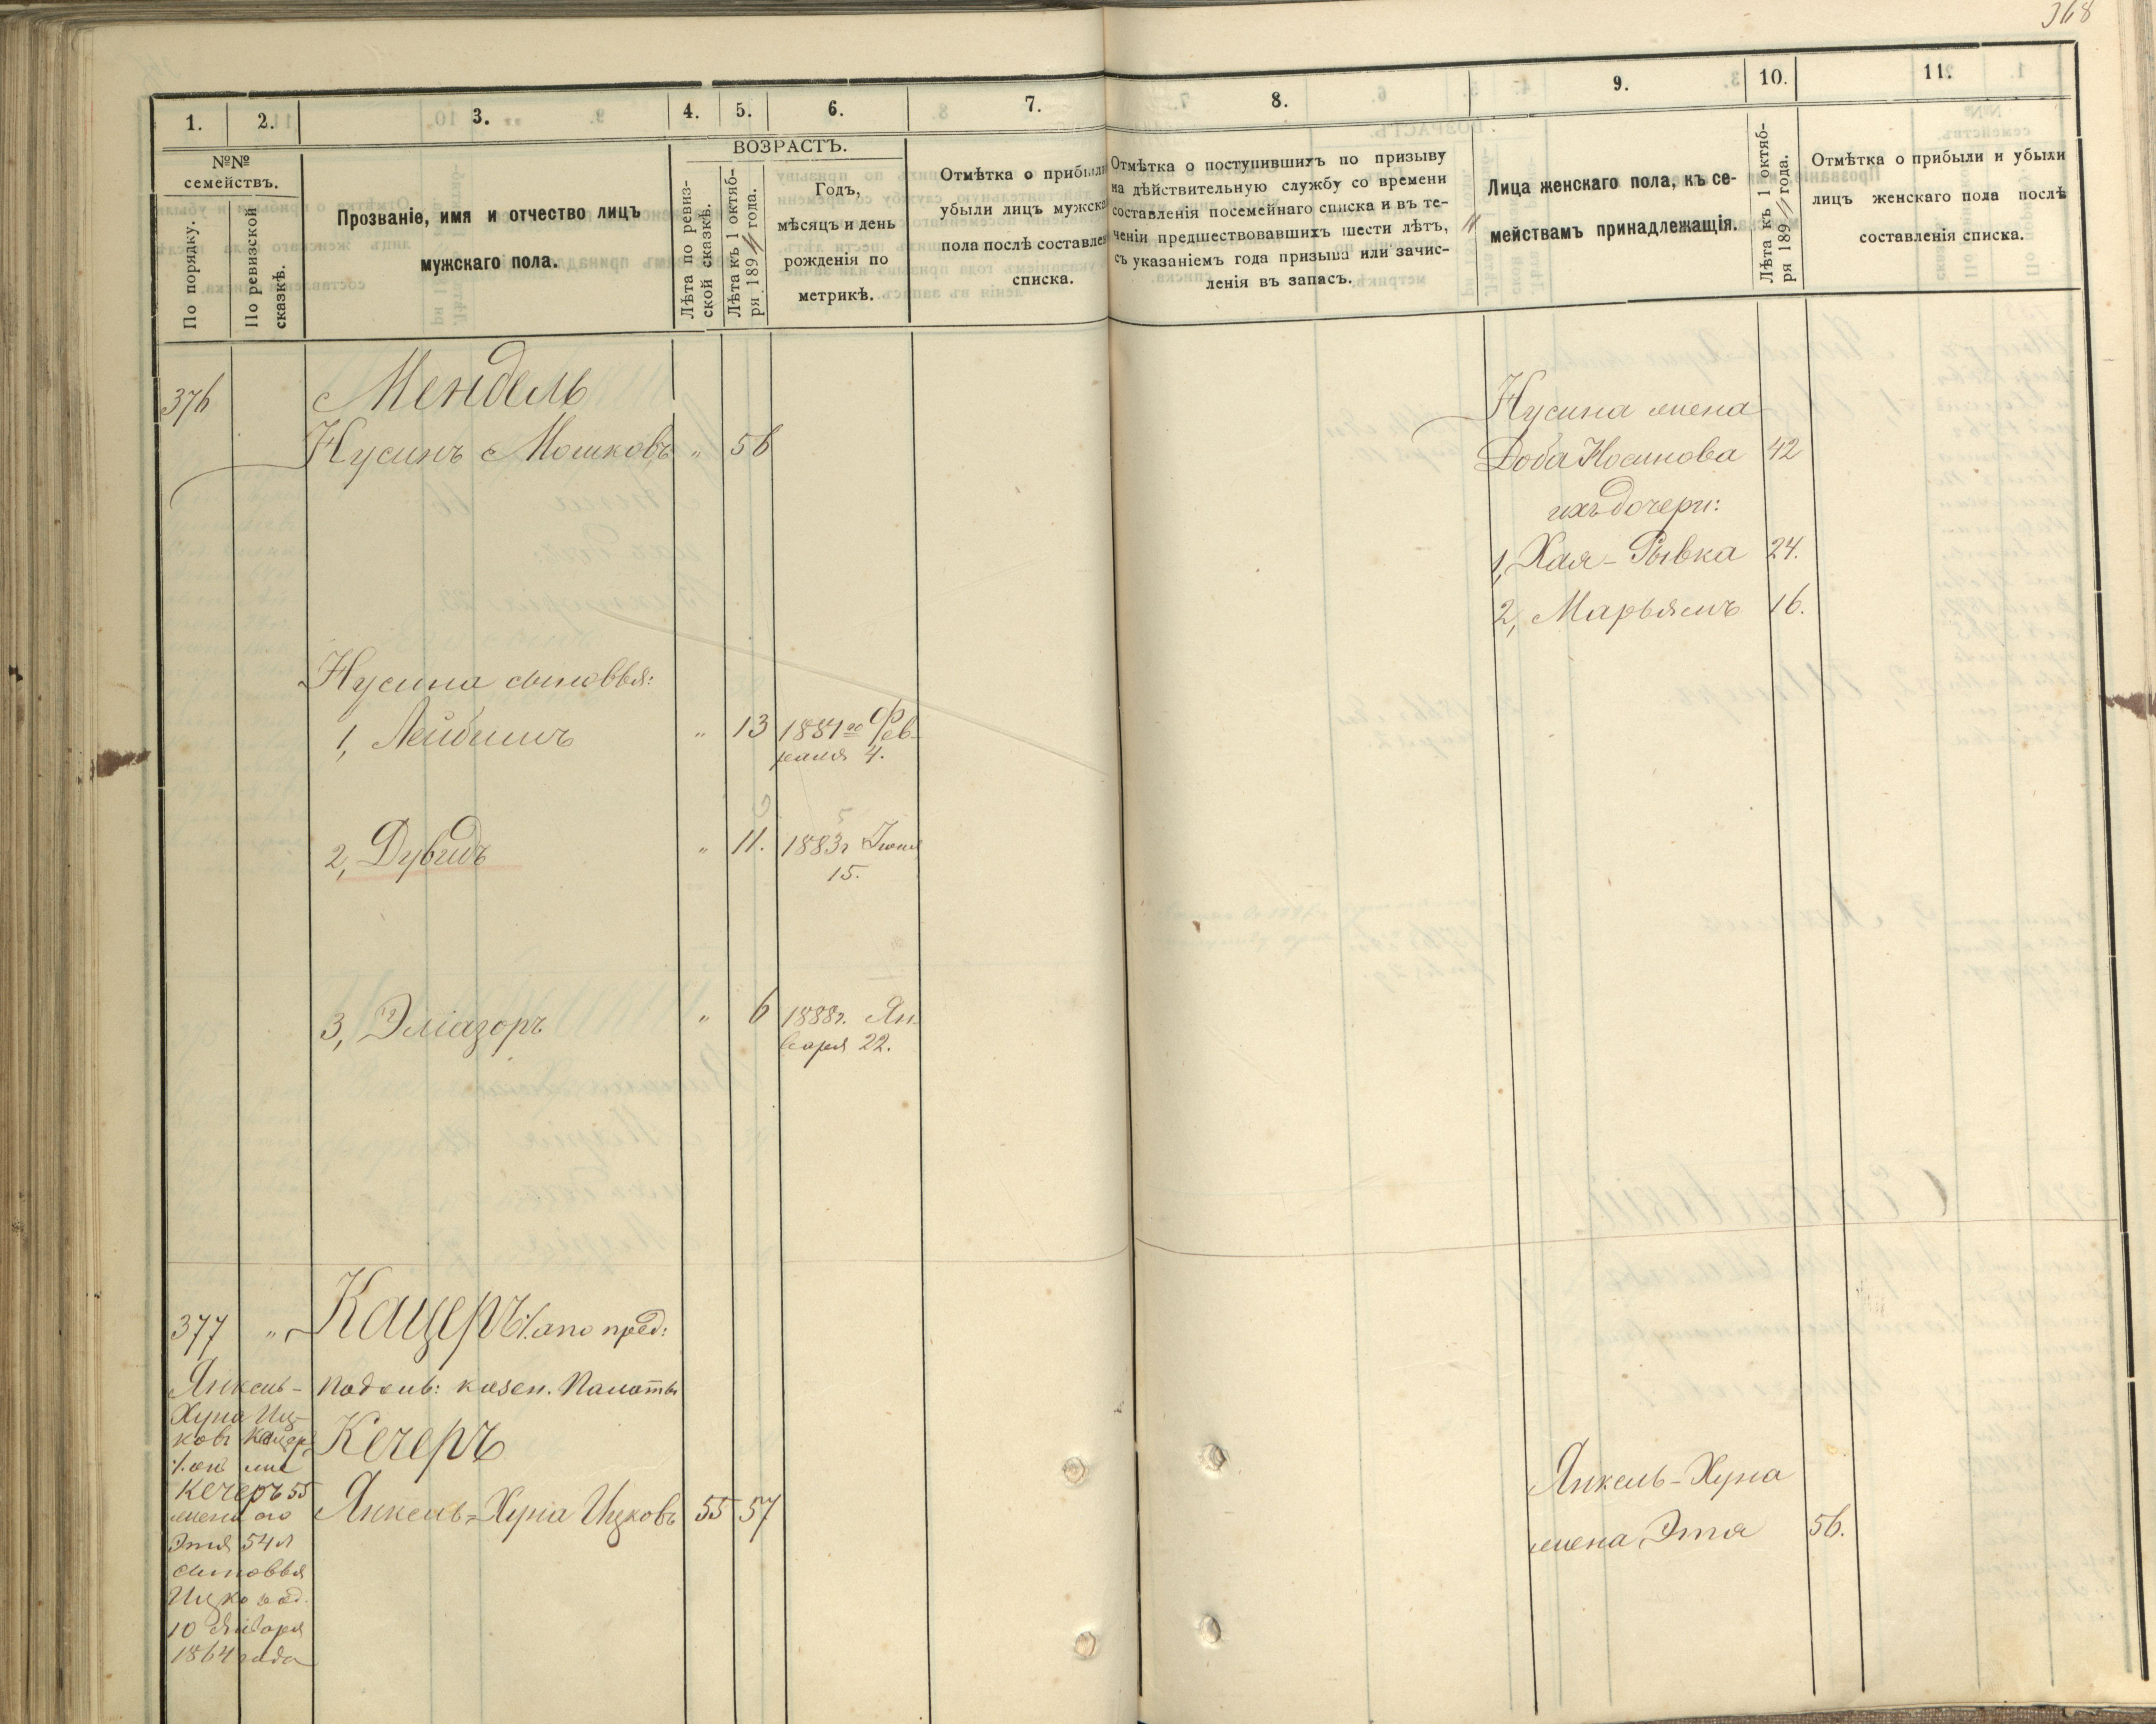 368
1.
2.
3.
4.
5.
6.
7.
8.
9.
10.
11.
№№ семействъ.
По порядку.
По ревизской сказкѣ.
Прозваніе, имя и отчество лицъ
мужскаго пола.
ВОЗРАСТЪ.
Лѣта по ревиз-
ской сказкѣ.
Лѣта къ 1 октяб-
ря 1894 года.
Годъ,
мѣсяцъ и день
рожденія по
метрикѣ.
Отмѣтка о прибыли
убыли лицъ мужска
пола послѣ составлен
списка.
Отмѣтка о поступившихъ по призыву
на дѣйствительную службу со времени
составленія посемейнаго списка и въ те-
ченіи предшествовавшихъ шести лѣтъ,
съ указаніемъ года призыва или зачис-
ленія въ запасъ.
Лица женскаго пола, къ се-
мействамъ принадлежащія.
Лѣта къ 1 октяб-
ря 1894 года.
Отмѣтка о прибыли и убыли
лицъ женскаго пола послѣ
составленія списка.
376
Мендель
Нусинъ Мошковъ " 56
Нусина жена
Доба Носинова 42
ихъ дочери:
1, Хая-Рывка 24.
2, Марьямъ 16.
Нусина сыновья:
1, Лейбишъ " 13 1881го Фев-
раля 4.
2, Дувидъ " 11. 1883г Іюня
15.
3, Эліазоръ " 6 1888г. Ян
варя 22.
377 " Кацеръ %. апо пред:
Подоль: казен. Палаты
Кечеръ
Янкель-Хуна Ицковъ 55 57
Янкель-
Хуна Иц-
ковъ Кацеръ
%. онъ же
Кечеръ 55
жена его
Этя 54 л
сыновья
Ицко род.
10 Января
1864 года
Янкель-Хуна
жена Этя 56.